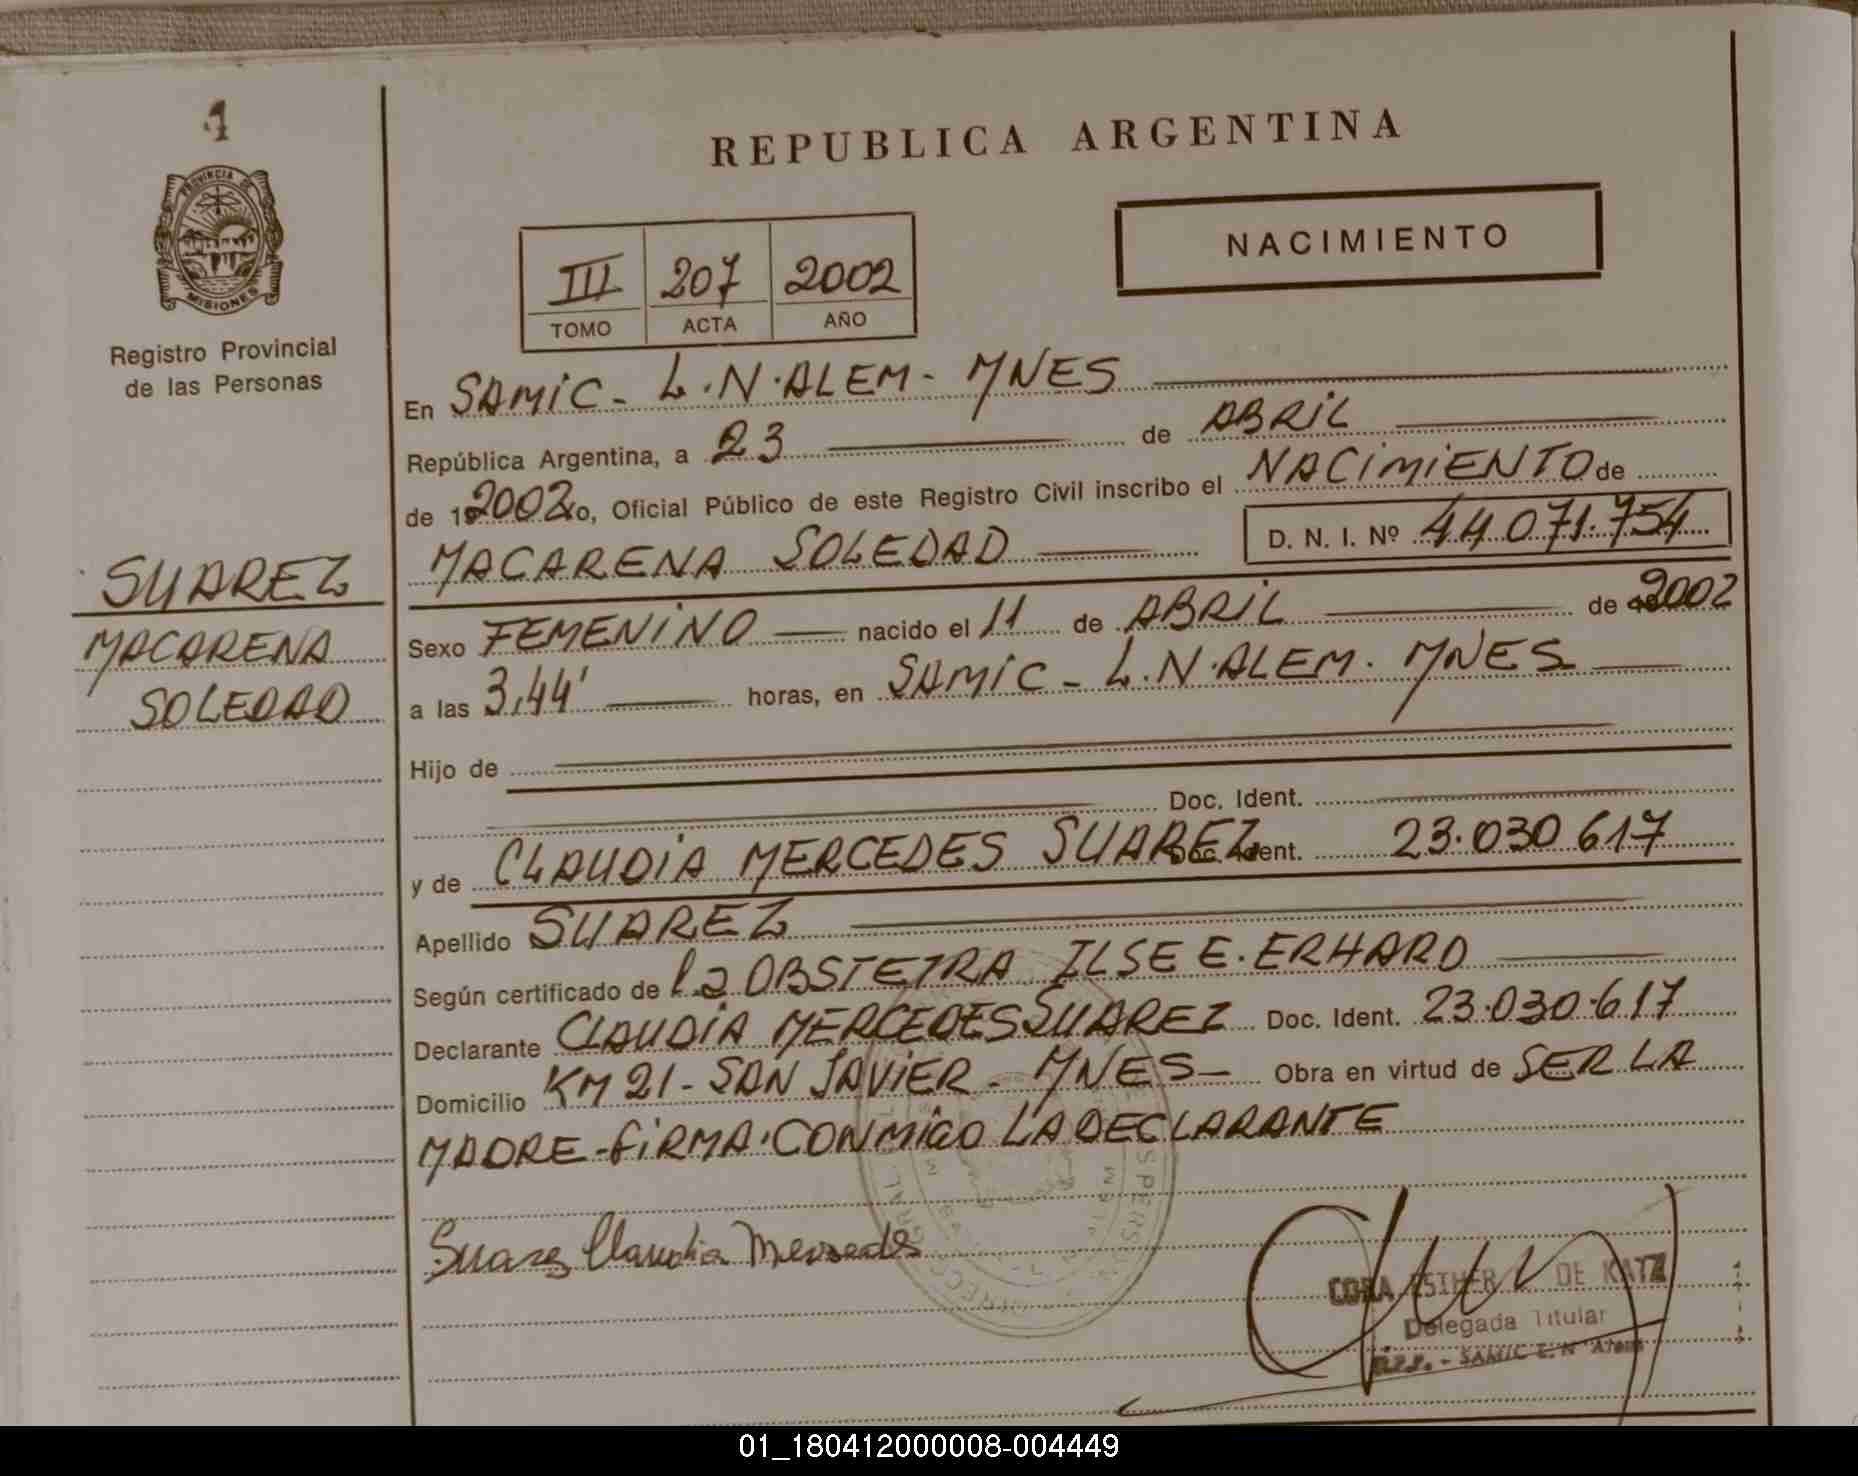 1
PROVINCIA DE
MISIONES
Registro Provincial
de las Personas
SUAREZ
MACARENA
SOLEDAD
REPUBLICA ARGENTINA
NACIMIENTO
III 207 2002
TOMO ACTA AÑO
En SAMIC - L.N.ALEM - MNES
República Argentina, a 23 de ABRIL
de 192002 yo, Oficial Público de este Registro Civil inscribo el NACIMIENTO de
MACARENA SOLEDAD D. N. I. Nº 44.071.754
Sexo FEMENINO nacido el 11 de ABRIL de 2002
a las 3,44' horas, en SAMIC - L.N.ALEM. MNES
Hijo de
Doc. Ident.
y de CLAUDIA MERCEDES SUAREZ Doc. Ident. 23.030.617
Apellido SUAREZ
Según certificado de la OBSTETRA ILSE E. ERHARD
Declarante CLAUDIA MERCEDES SUAREZ Doc. Ident. 23.030.617
Domicilio KM 21 - SAN JAVIER - MNES - Obra en virtud de SER LA
MADRE - FIRMA CONMIGO LA DECLARANTE
Suarez Claudia Mercedes
ESTHER DE KATZ
Delegada Titular
01_180412000008-004449